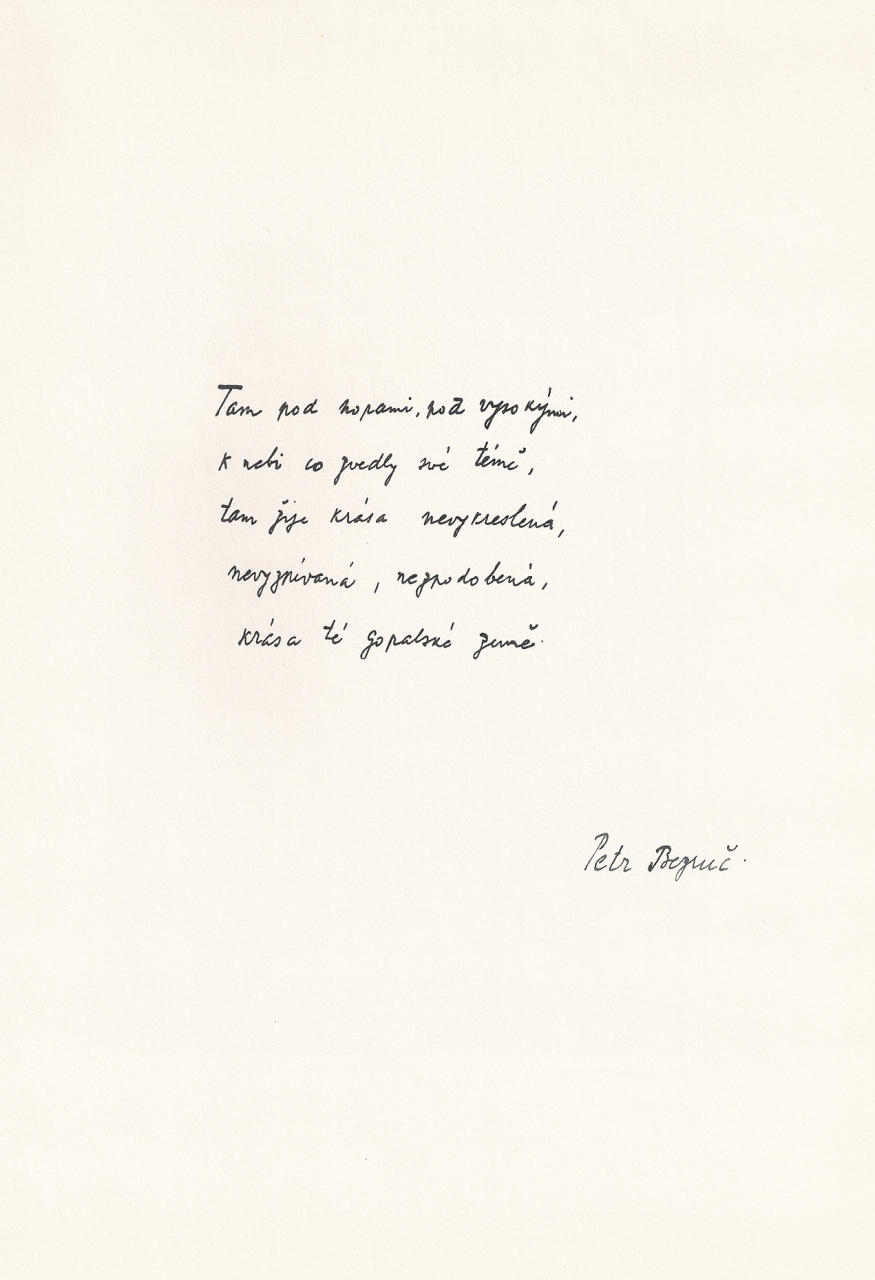 Tam pod horami, pod vysokými,
k nebi co zvedly své témě,
tam žije krása nevykreslená,
nevyzpívaná, nezpodobená,
krása té goralské země.
Petr Bezruč.